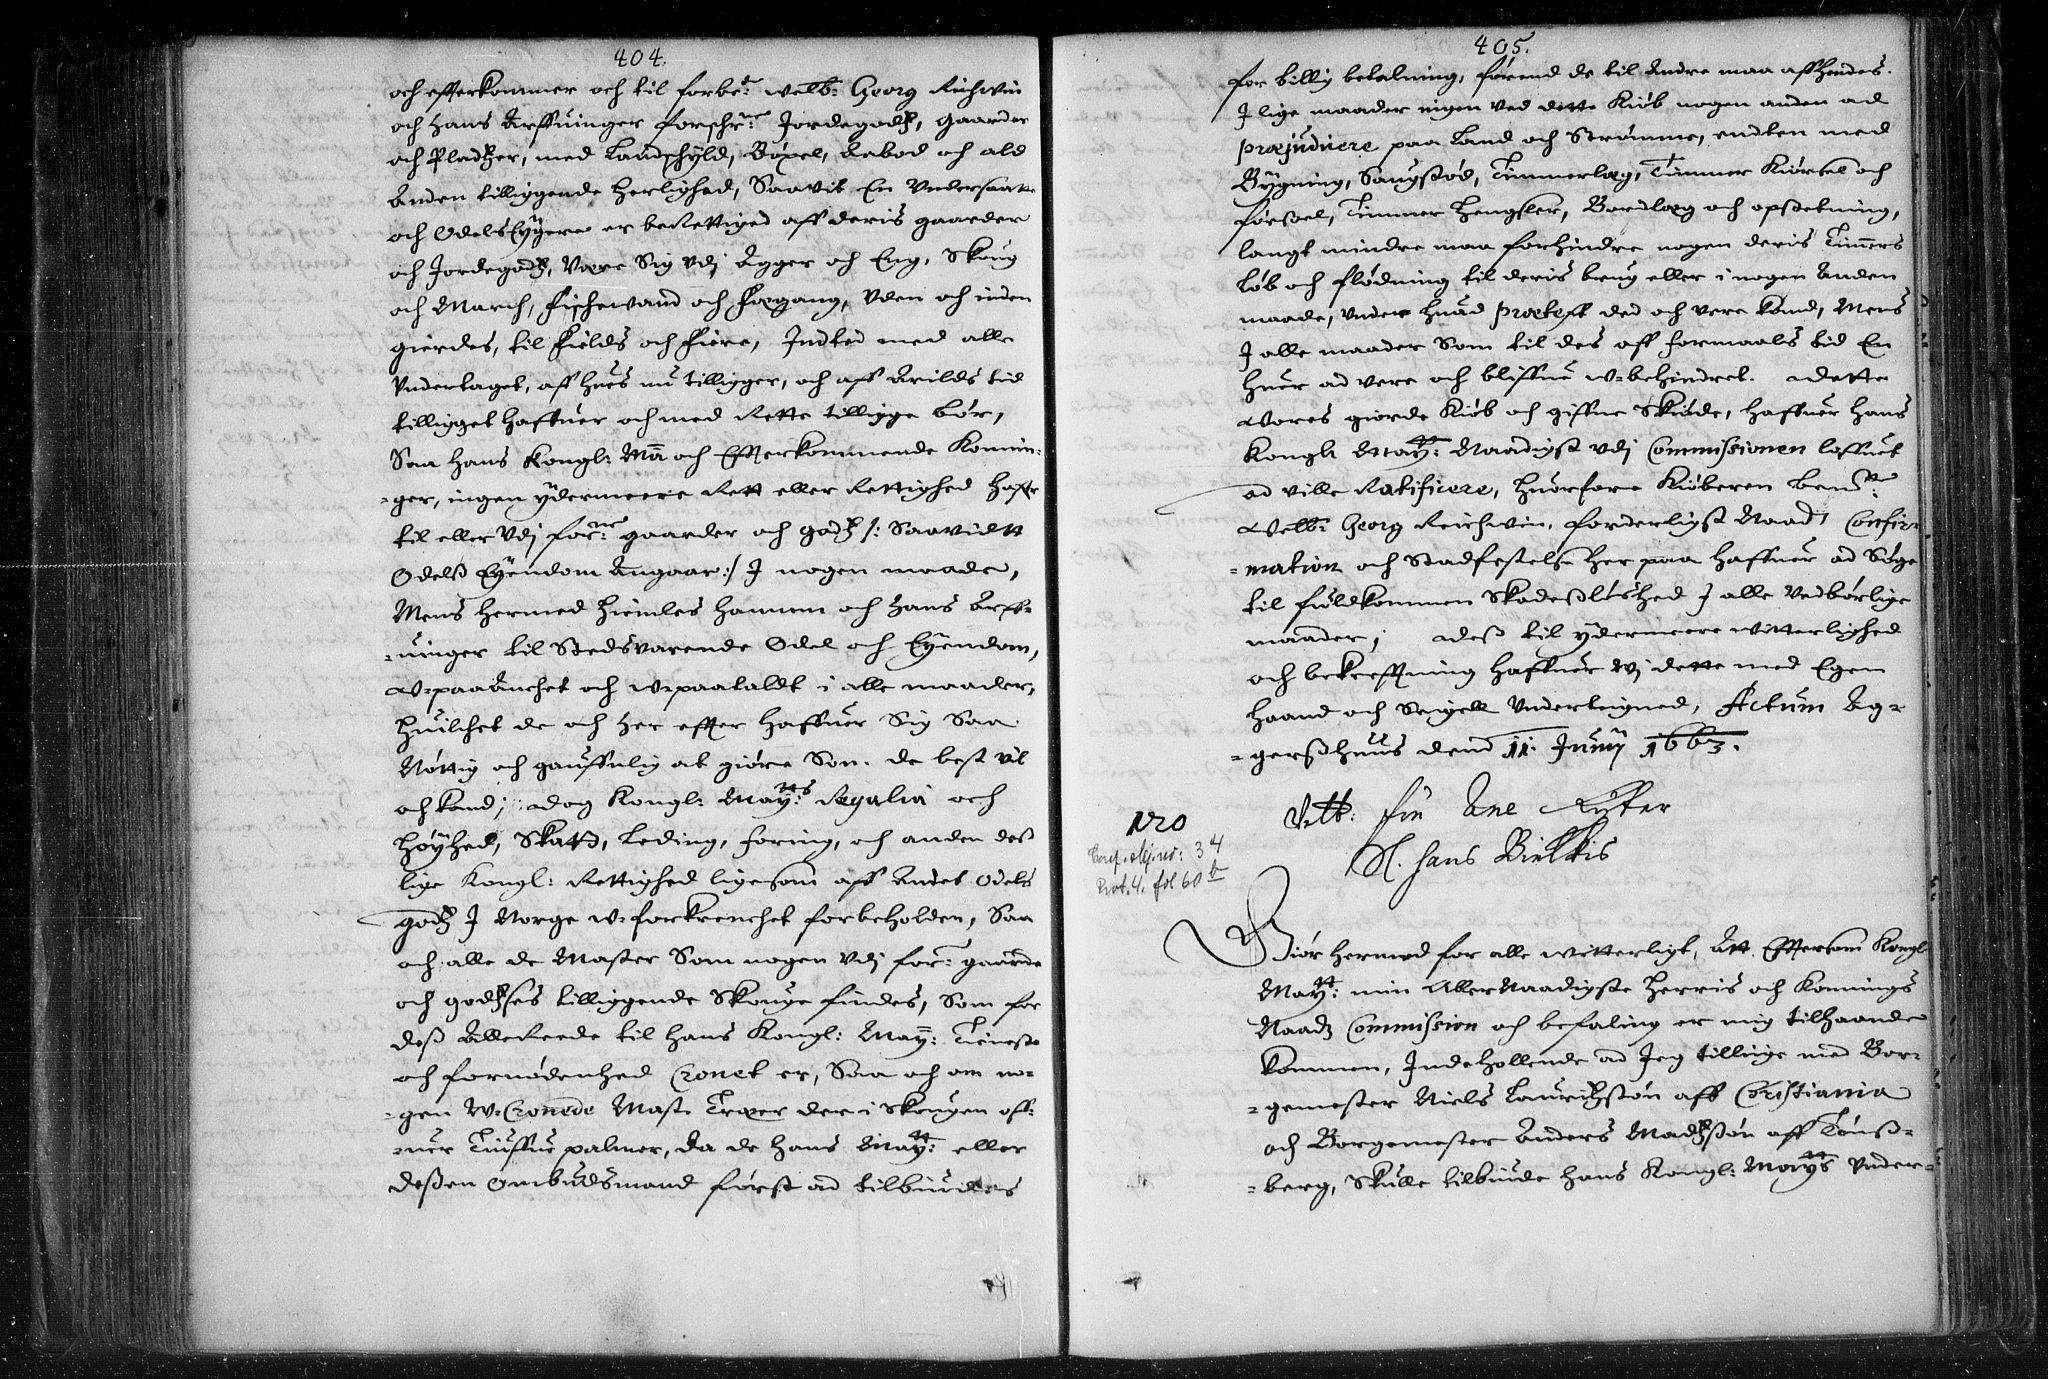 404.
och effterkommer och til forbe:te welb: Georg Richwin
och hans Arffuinger forschr:ne Jordegodtz, gaarder
och Pladtzer, med Landschyld, Böxel, Aabod och ald
Anden tilliggende herlighed, Saavit En Vndersaatte
och Odels Eÿgere er berettiged aff deris gaarder
och Jordegodtz, Være Sig vdj Agger och Eng, Skoug
och March, Fischevand och Fægang, Vden och inden
gierdes, til Fields och Fiere, Jndted med alle
Vndertaget, aff hues nu tilligger, och aff Arilds tid
tilligget haffuer och med Rette tilligge bör,
Saa hans Kongl: Ma: och Effterkommende Konnin-
-ger, ingen ÿdermeere Rett eller Rettighed haffr
til eller vdj for:ne gaarder och godtz /: Saavidtt
Odelß Eÿendom Angaar:/ J nogen maade,
Mens hermed hiemles hannem och hans Arff-
-uinger til Stedsvarende Odel och Eÿendom,
W-paaancket och w-paataldt i alle maader,
Huilchet de och her effter haffuer Sig Saa
Nöttig och gauffnlig at giöre Som de best vil
och kand; dog Kongl: Maÿ:tts Regalia och
Höÿhed, Skatt, Leding, Foring, och anden deß
lige Kongl: Rettighed ligesom aff Andet Odels
godtz J Norge w-forkrencket forbeholden, Saa
och alle de Master Som nogen vdj for:ne gaarde
och godtzses tilliggende Skouge findes, Som for
deß Allereede til Hans Kongl: Maÿ: Tieneste
och fornödenhed Cronet er, Saa och om no-
-gen W-Cronede Mast Træer der i Skougen off-
-uer Tiuffue palmer, da de hans Maÿ:tt eller
deßen Ombudsmand först ad tilbiudes
405.
for billig betalning, förend de til Andre maa affhendes.
J lige maader ingen ved dette Kiöb nogen anden ad
præjudicere paa Land och Strömme, endten med
Bÿgning, Saugstöd, Timmerlæg, Timmer Kiörsel och
förßel, Timmer hengsler, Bordlæg och opsetning,
langt mindre maa forhindre nogen deris Timers
löb och flödning til deris brug eller i nogen Anden
maade, Vnder huad prætext ded och vere kand, Mens
J alle maader Som til des aff formaals tid En
huer ad vere och bliffue w-behindret. Dette
Vores giorde Kiöb och giffne Skiöde, haffuer Hans
Kongl: Maÿ:tt Naadigst vdj Commissionen loffuet
ad ville Ratificere, Huorfore Kiöberen bem:te
Velb: Georg Reichwin, forderligst Naadt Confir-
-mation och Stadfestelse her paa haffuer ad Söge
til fuldkommen Skadeßlöshed J alle vedbörlige
maader; deß til ÿdermeere witterlighed
och bekreffning haffuer Wj dette med Egen
Haand och Seigell Vnderteigned, Actum Ag-
-gerßhuus dend 11. Junij 1663.
Nro
Conf. Skj. nr: 34
Prot. 4. fol 60 b
Velb: Fru Ane Ryter
Sl. Hans Bielkis
Giör hermed for alle witterligt, Att Eftersom Kongl
Maÿ:tt min Aller Naadigste Herris och Konnings
Naadtz Commission och befaling er mig tilhaande
kommen, Jndehollende ad Jeg tillige med Bor-
-gemester Niels Lauridtzsön aff Christiania
och Borgemester Anders Madtzsön aff Tönß-
-berg, Skulle tilbiude Hans Kongl: Maÿ:tts Vnder-